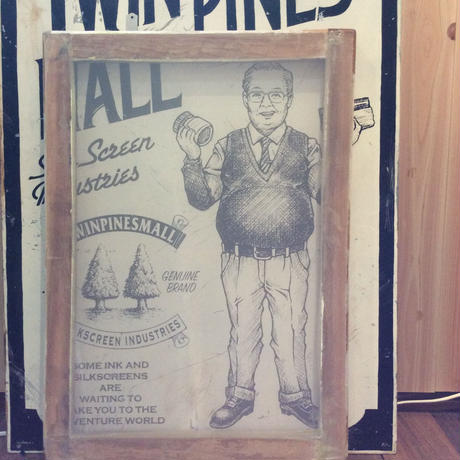 TWINPINES
ALL
Screen
ustries
WINPINESMALL
GENUINE
BRAND
KSCREEN INDUSTRIES
SOME INK AND
SILKSCREENS
ARE
WAITING TO
AKE YOU TO THE
VENTURE WORLD